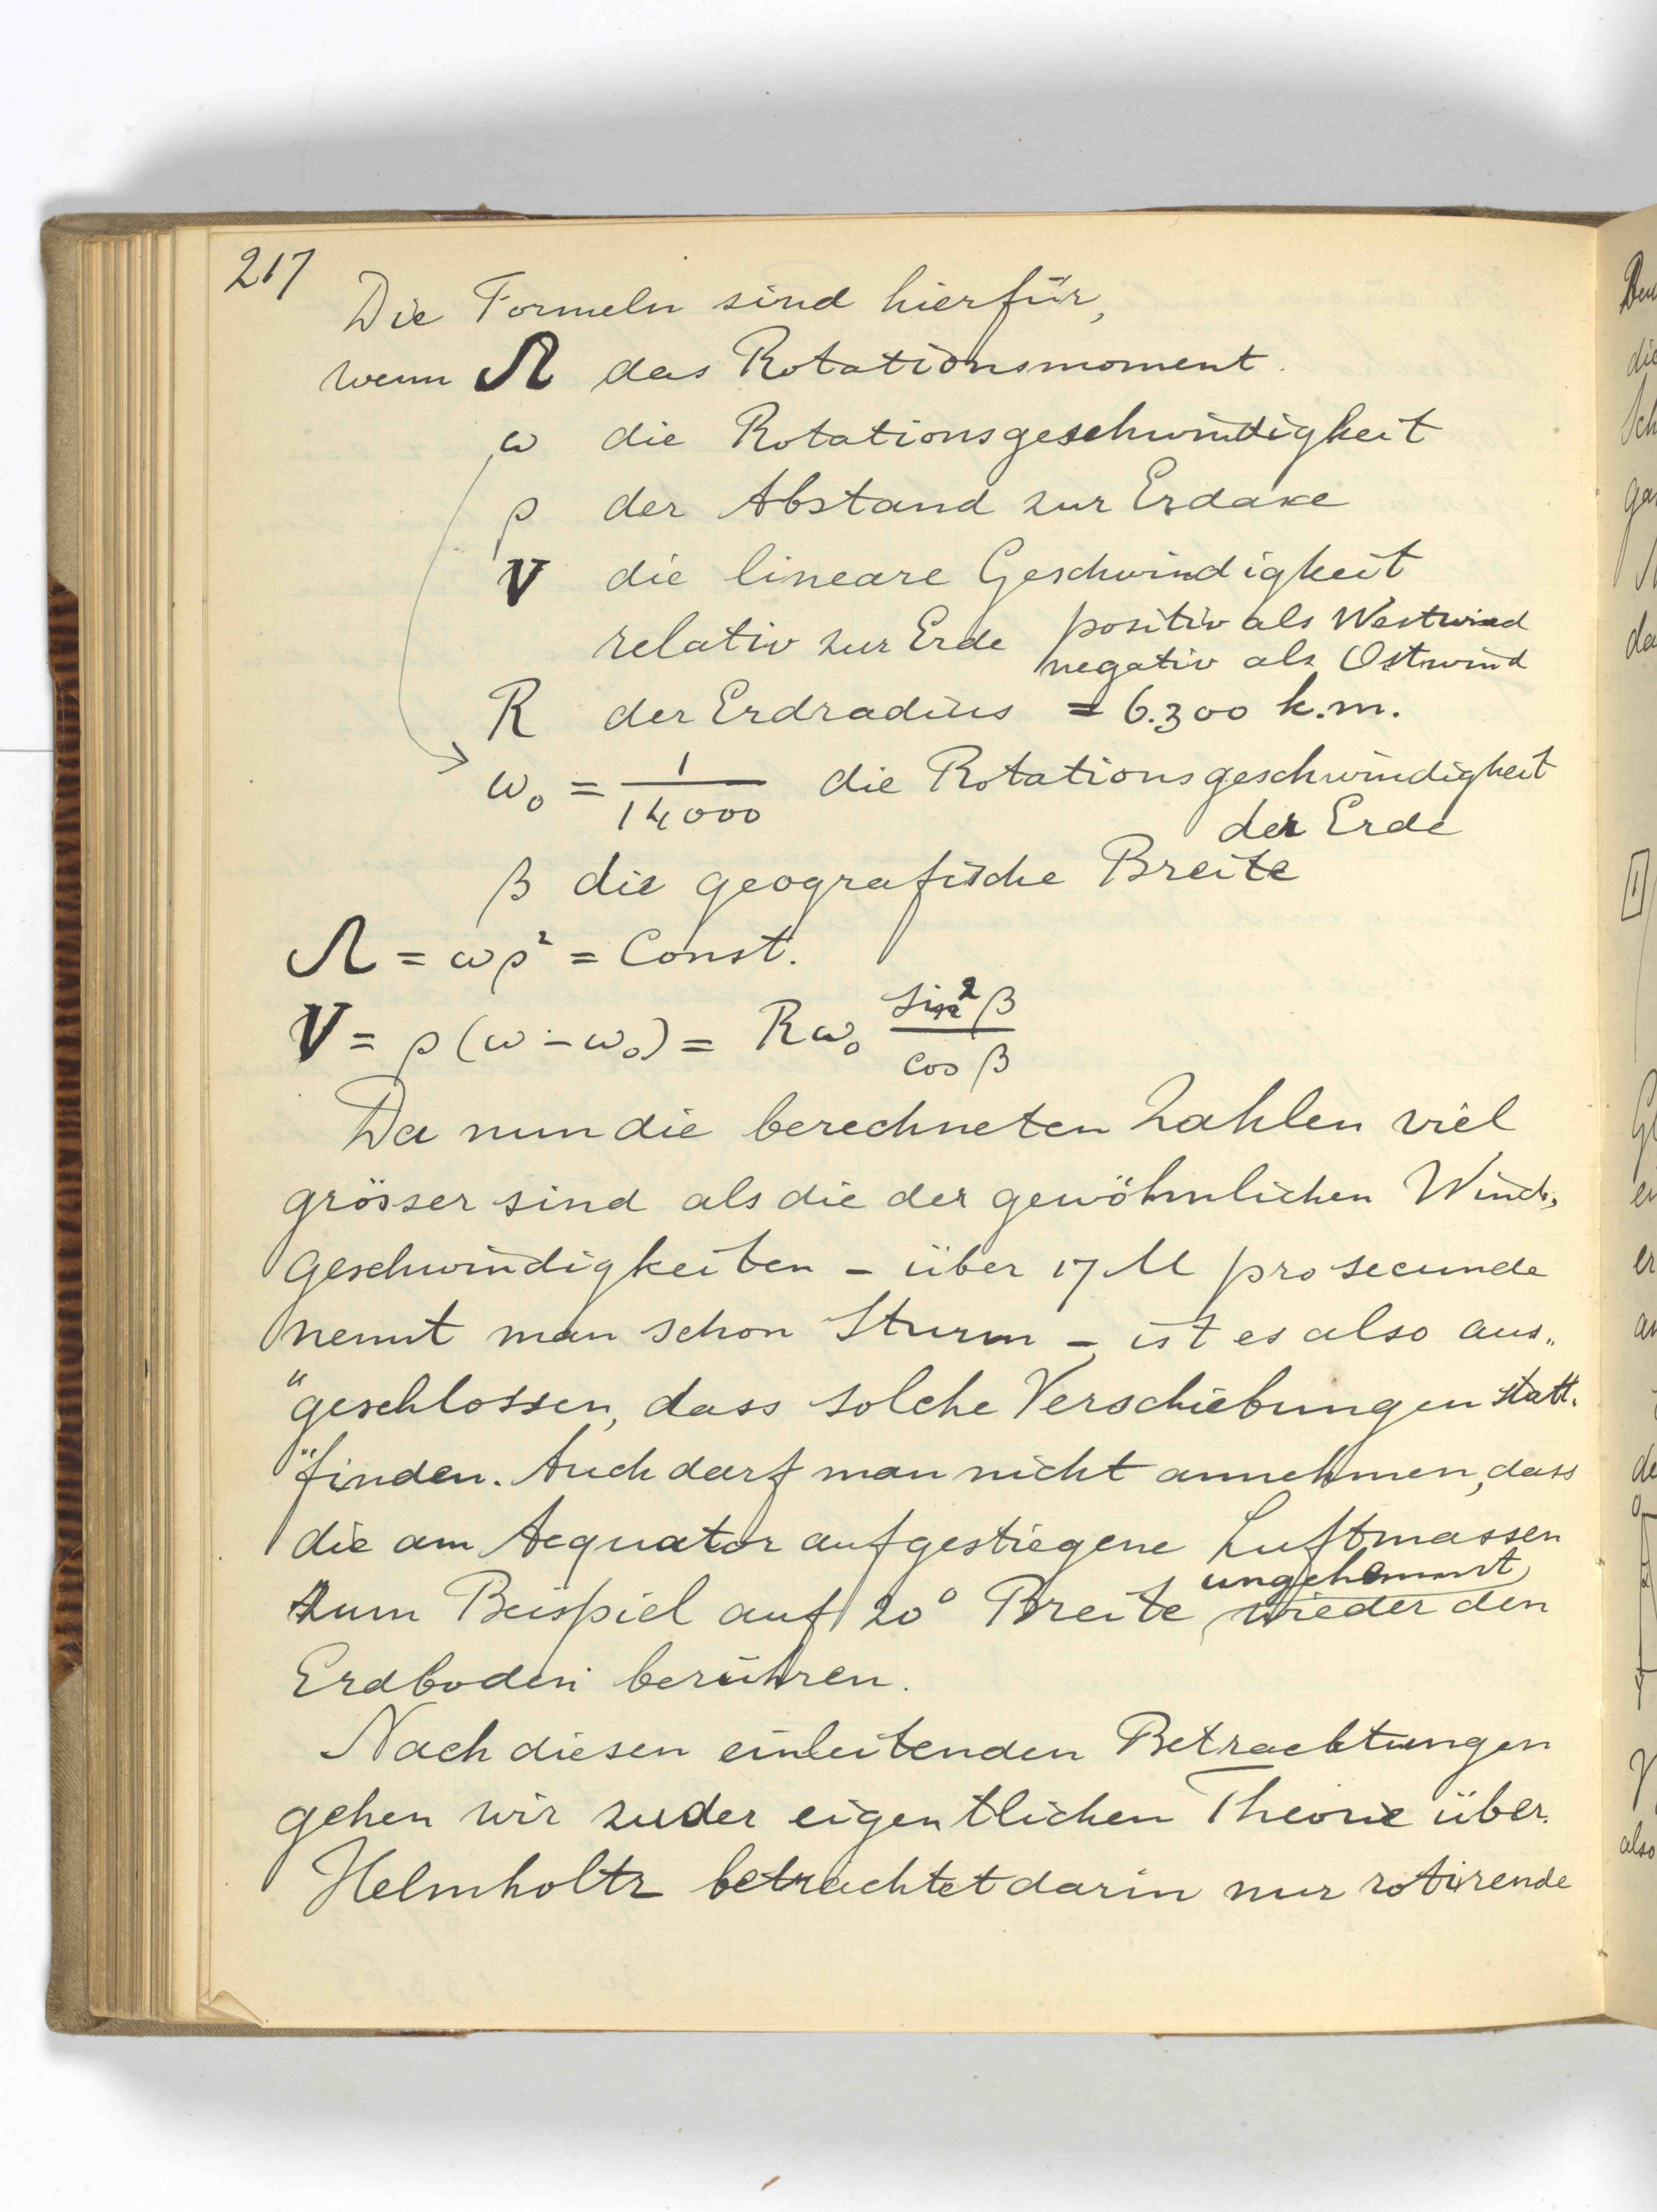 217
Die Formeln sind hierfür,
wenn Ω das Rotationsmoment.
ω die Rotationsgeschwindigkeit
ρ der Abstand zur Erdaxe
V die lineare Geschwindigkeit
relativ zur Erde positiv als Westwind
negativ als Ostwind
R der Erdradius = 6.300 k.m.
ω₀ = 1/14000 die Rotationsgeschwindigkeit
der Erde
β die geografische Breite
Ω = ωρ² = Const.
V = ρ(ω - ω₀) = Rω₀ sin²β/cos β
Da nun die berechneten Zahlen viel
grösser sind als die der gewöhnlichen Wind„
geschwindigkeiten - über 17 M pro secunde
nennt man schon Sturm - ist es also aus„
"geschlossen, dass solche Verschiebungen statt„
"finden. Auch darf man nicht annehmen, dass
die am Aequator aufgestiegene Luftmassen
ungehemmt
zum Beispiel auf 20° Breite wieder den
Erdboden berühren.
Nach diesen einleitenden Betrachtungen
gehen wir zu der eigentlichen Theorie über.
Helmholtz betrachtet darin nur rotirende